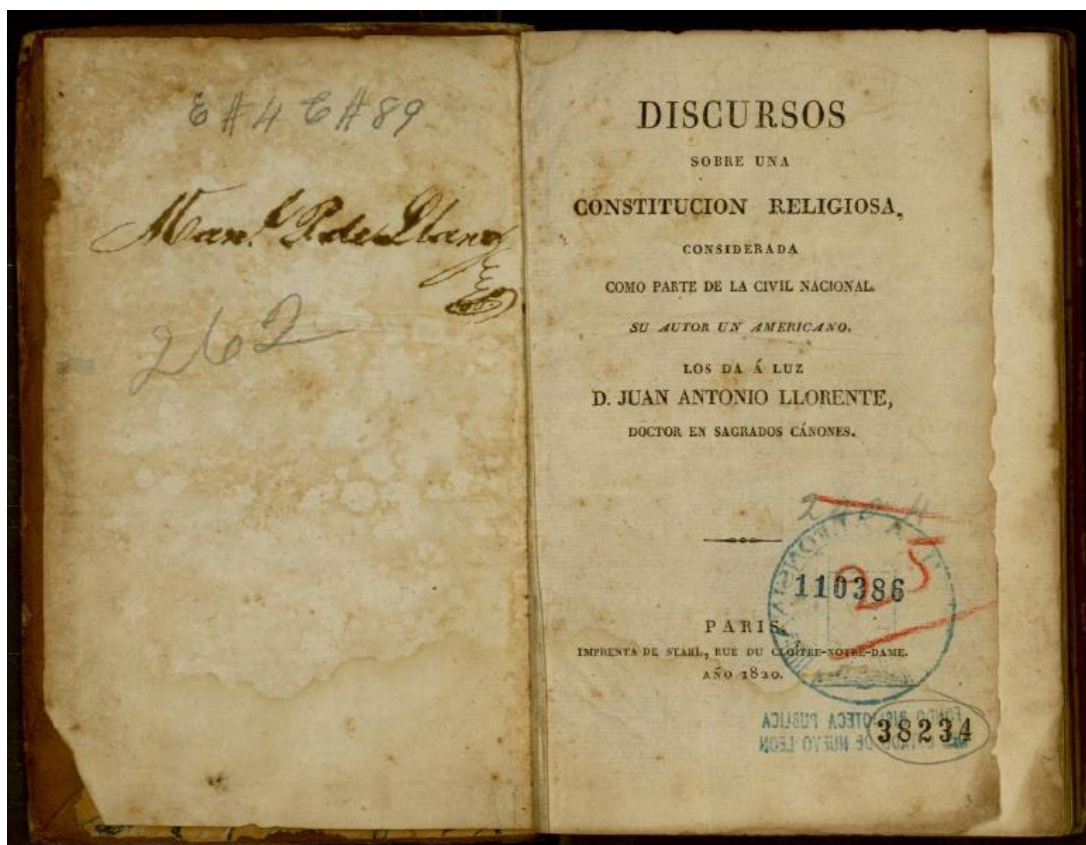 E#4 C#89
Man.l P. de Llano
262
DISCURSOS
SOBRE UNA
CONSTITUCION RELIGIOSA,
CONSIDERADA
COMO PARTE DE LA CIVIL NACIONAL.
SU AUTOR UN AMERICANO.
LOS DA Á LUZ
D. JUAN ANTONIO LLORENTE,
DOCTOR EN SAGRADOS CÁNONES.
25
110386
PARIS
IMPRENTA DE STAHL, RUE DU CLOITRE-NOTRE-DAME.
AÑO 1820.
FONDO BIBLIOTECA PUBLICA
DE NUEVO LEON
38234